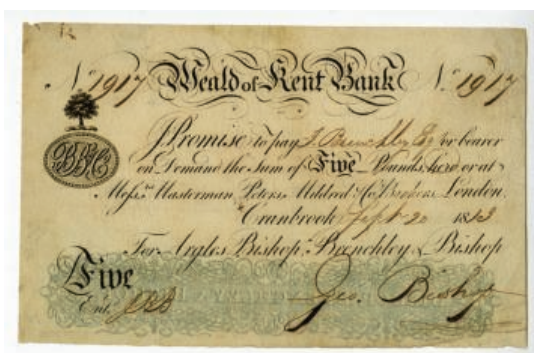 No 1917 Weald of Kent Bank No 1917
I Promise to pay J. Brenchley Esq or bearer
on Demand the Sum of Five Pounds, here or at
Messrs Masterman, Peters, Mildred & Co Bankers London.
Cranbrook Sept 20 1813
For Argles, Bishop, Brenchley & Bishop
Five
Entd
Geo. Bishop